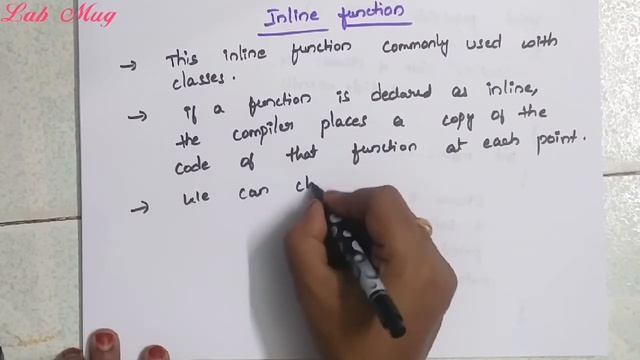 Lab Mug
Inline function
→ This inline function commonly used with
classes.
→ if a function is declared as inline,
the compiler places a copy of the
code of that function at each point.
→ We can ch